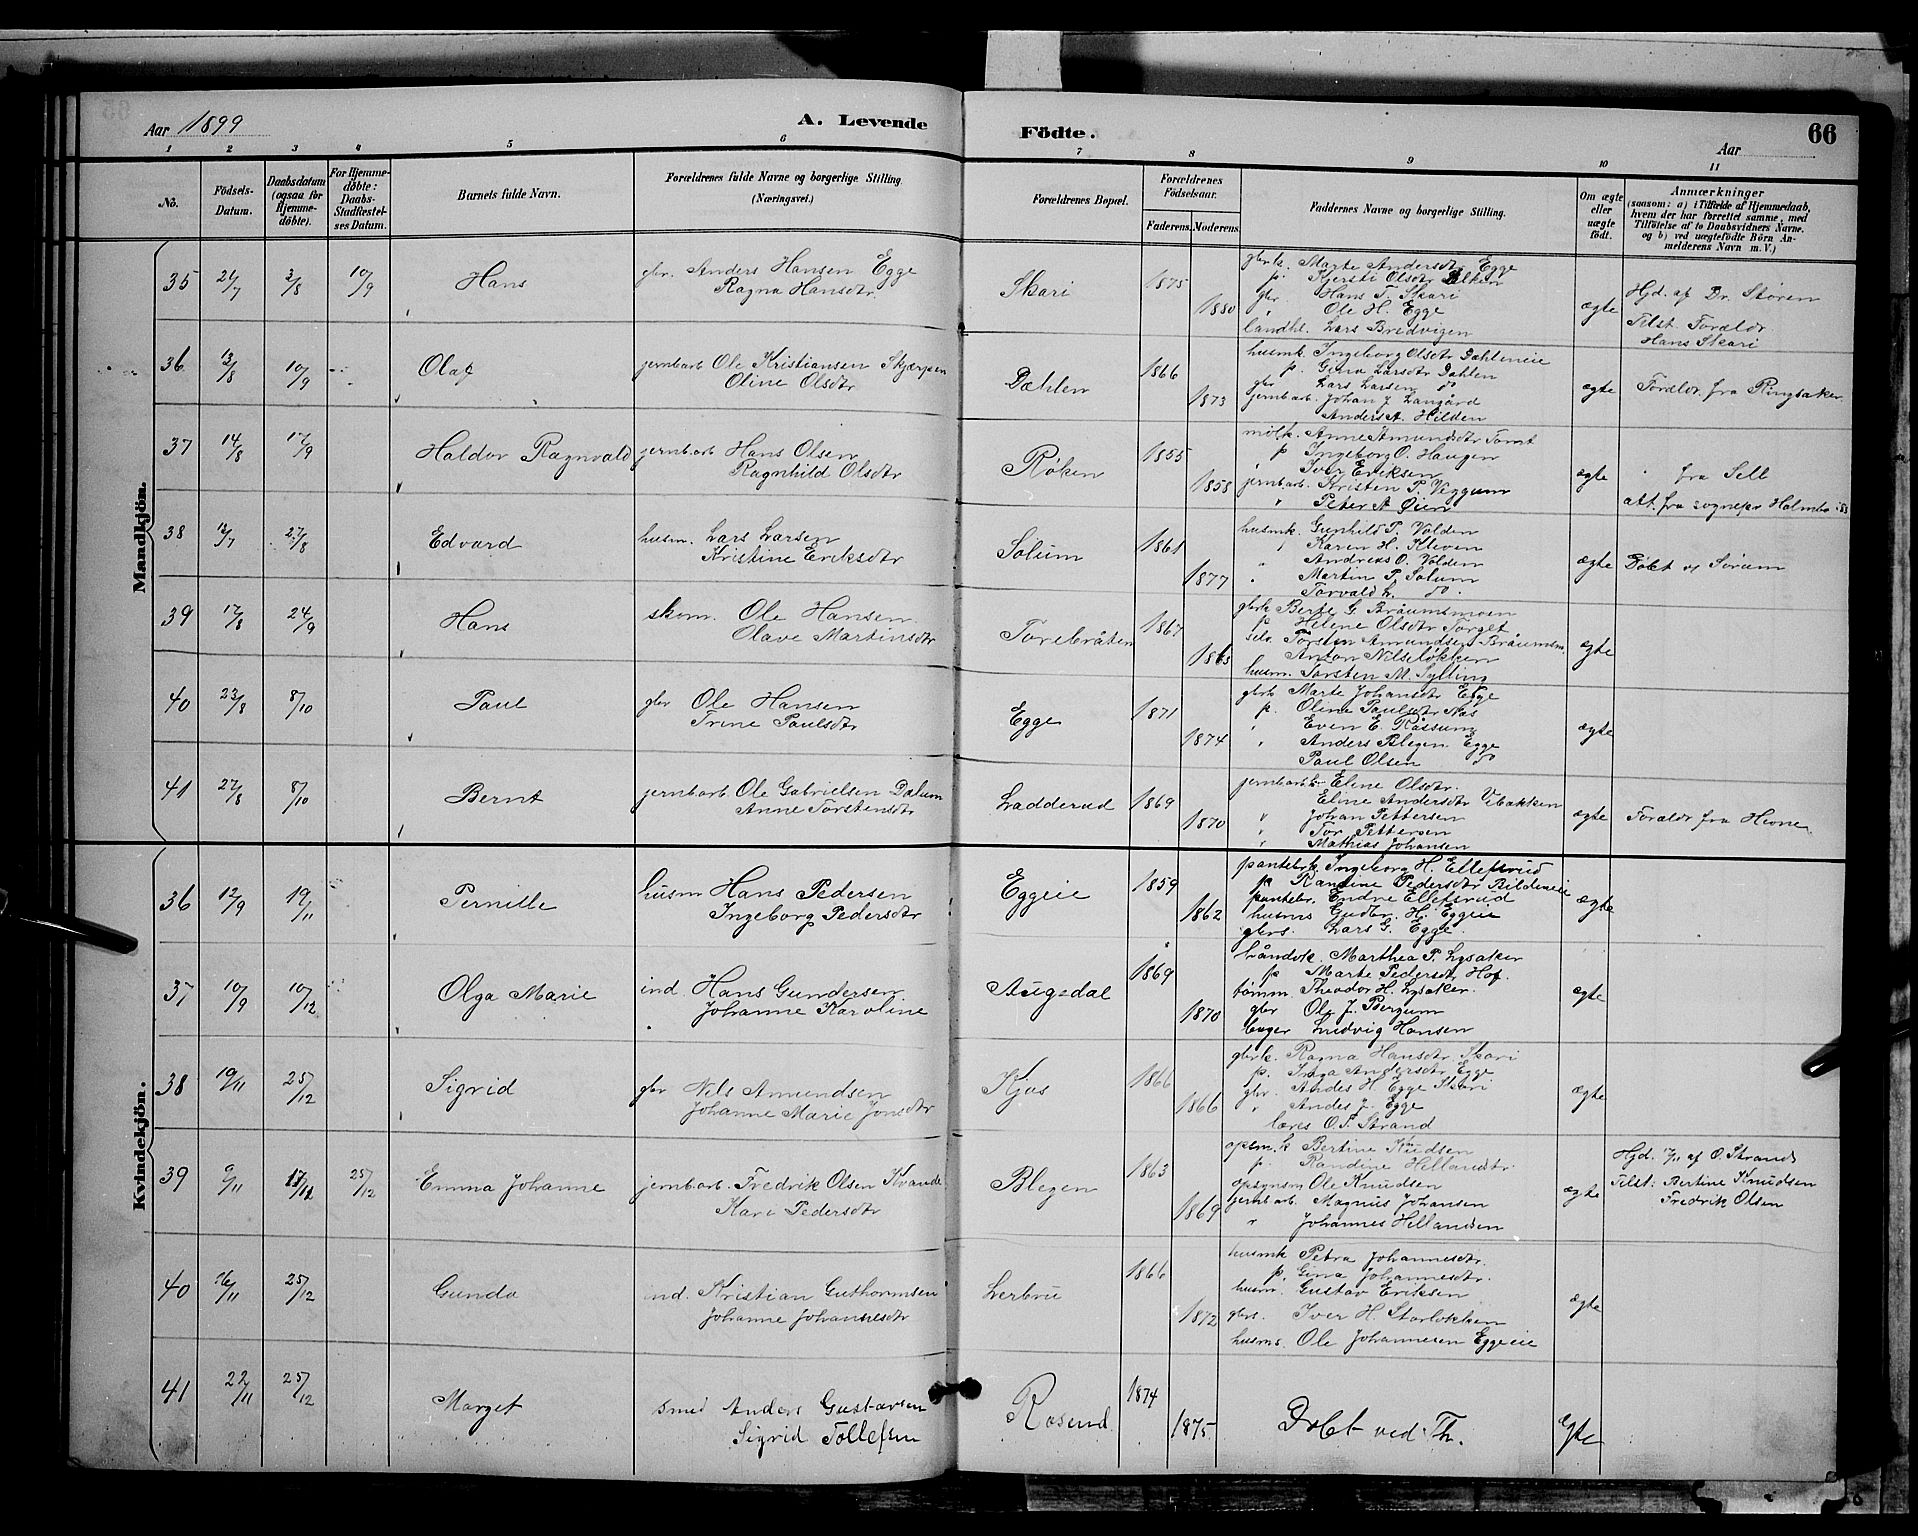 Aar 1899 A. Levende Födte. Aar 66
1 2 3 4 5 6 7 8 9 10 11
No. Födsels-Datum. Daabsdatum (ogsaa for Hjemme-döbte). For Hjemme-döbte: Daabs-Stadfæstel-ses Datum. Barnets fulde Navn. Forældrenes fulde Navne og borgerlige Stilling. (Næringsvei.) Forældrenes Bopæl. Forældrenes Födselsaar. Faderens. Moderens. Faddernes Navne og borgerlige Stilling. Om ægte eller uægte födt. Anmærkninger (saasom: a) i Tilfælde af Hjemmedaab, hvem der har forrettet samme, med Tilföielse af to Daabsvidners Navne. og b) ved uægtefödte Börn An-melderens Navn m. V.)
Mandkjön.
35 24/7 3/8 10/9 Hans gbr. Anders Hansen Egge
Ragna Hansdtr.
Skari 1875 1880
gbrk. Marte Andersdtr Egge
p. Kjersti Olsdtr
gbr Hans T. Skari
" Ole H. Egge
landhl. Lars Bredvigen
ægte
Hjd. af Dr. Støren
Tilst. Forældr.
Hans Skari
36 13/8 10/9 Olaf jernbarb Ole Kristiansen Skjærpen
Oline Olsdtr
Dæhlen 1866 1873
husmk. Ingeborg Olsdtr Dahleneie
p. Gina Larsdtr Dahlen
gbr Lars Larsen do
jernbarb. Johan J. Langård
Anders A. Hilden
ægte
Forældr. fra Ringsaker
37 14/8 17/9 Haldor Ragnvald jernbarb Hans Olsen
Ragnhild Olsdtr
Røken 1855 1858
mölk. Anne Amundsdtr Tomt
p Ingeborg O. Haugen
" Iver Eriksen
jernbarb. Kristen P. Veggum
" Peter A Øien
ægte
" fra Sell
att. fra sognepr Holmbo
38 12/7 27/8 Edvard husm. Lars Larsen
Kristine Eriksdtr
Solum 1861 1877
husmk. Gunhild P. Volden
" Karen H. Kleven
" Andreas O. Volden
" Martin P. Solum
Torvald L. do.
ægte
Døbt v. Sørum
39 17/8 24/9 Hans skom. Ole Hansen
Olave Martinsdtr
Torebråten 1867 1863
gbrk Berte G. Bråumsmoen
p. Helene Olsdtr Torget
selv. Torsten Amundsen Bråumsm.
Anton Nilseløkken
husm. Torsten M. Sylling
ægte
40 23/8 8/10 Paul gbr Ole Hansen
Trine Paulsdtr
Egge 1871 1874
gbrk Marte Johansdtr Egge
p. Oline Paulsdtr Næs
" Even E. Råssum
" Anders Blegen Egge
Paul Olsen do
ægte
41 27/8 8/10 Bernt jernbarb Ole Gabrielsen Dalum
Anne Torstensdtr
Ladderud 1869 1870
jernbarb Eline Olsdtr.
Eline Andersdtr Vibakken
" Johan Pettersen
" Tor Pettersen
" Mathias Johansen
ægte
Forældr fra Hevne
Kvindekjön.
36 12/9 19/11 Pernille husm Hans Pedersen
Ingeborg Pedersdtr
Eggeie 1859 1862
pantebrk Ingeborg H. Ellefsrud
p Randine Pedersdtr Bildeneie
pantebr. Endre Ellefsrud
husms Gudbr. H. Eggeie
gbrs. Lars G. Egge.
ægte
37 10/9 10/12 Olga Marie ind. Hans Gundersen
Johanne Karoline
Augedal 1869 1870
håndvk. Marthea P. Lysaker
p Marte Pedersdtr Hof.
tømm. Theodor H. Lysaker.
gbr Ole J. Bergum
bager Ludvig Hansen
ægte
38 19/11 25/12 Sigrid gbr Nils Amundsen
Johanne Marie Jonsdtr
Kjos 1866 1866
gbrk. Ragna Hansdtr. Skari
p. Inga Andersdtr Egge
gbr. Andes H. Egge Skari
" Andes J. Egge
lærer O.S. Strand
ægte
39 9/11 17/11 25/12 Emma Johanne jernbarb. Fredrik Olsen Kvande
Kari Pedersdtr
Blegen 1863 1869
opsm.k Bertine Knudsen
p. Randine Hellandsdtr.
opsynsm Ole Knudsen
jernbarb. Magnus Johansen
" Johannes Hellandsen
ægte
Hjd. 17/11 af O. Strand
Tilst: Bertine Knudsen
Fredrik Olsen
40 16/11 25/12 Gunda ind. Kristian Guthormsen
Johanne Johannesdtr
Lerbru 1866 1872
husmk Petra Johannesdtr.
p. Gina Johannesdtr.
husm. Gustav Eriksen
gbrs. Iver H. Storløkken
husms. Ole Johannesen Eggeeie
ægte
41 22/11 25/12 Marget smed Anders Gustavsen
Sigrid Tollefsen
Rosend 1874 1875
Døbt ved Th.
Ægte